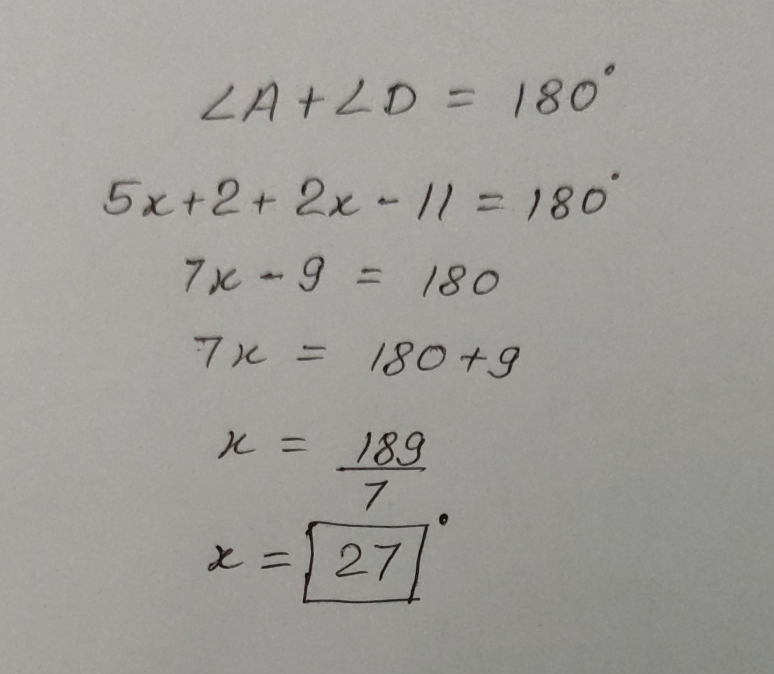 ∠A+∠D = 180°
5x+2+2x-11 = 180°
7x-9 = 180
7x = 180+9
x = 189/7
x = 27°